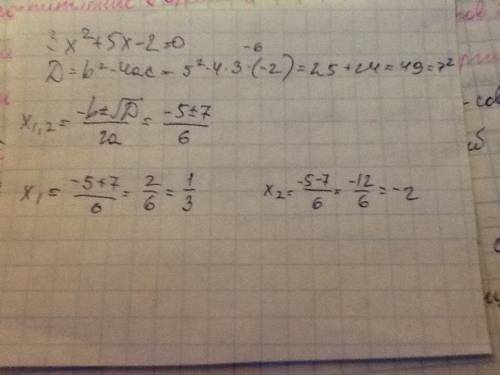 3x²+5x-2=0
-6
D=b²-4ac=5²-4·3·(-2)=25+24=49=7²
x₁,₂=(-b±√D)/2a=(-5±7)/6
x₁=(-5+7)/6=2/6=1/3 x₂=(-5-7)/6=-12/6=-2